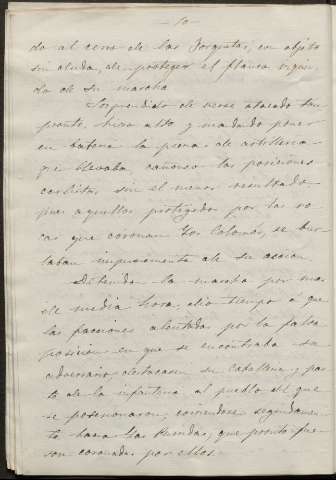 - 10 -
do al cerro de las Forquetas, con objeto
sin duda, de proteger el flanco izquier-
do de su marcha.
Sorprendido de verse atacado tan
pronto, hizo alto y mandando poner
en batería la pieza de artillería
que llevaba, cañoneó las posiciones
carlistas sin el menor resultado
pues aquellos protegidos por las ro-
cas que coronan Los Colomés, se bur-
laban impunemente de su acción.
Detenida la marcha por mas
de media hora, dio tiempo á que
las facciones alentadas por la falsa
posicion en que se encontraba su
adversario destacasen su caballeria y par-
te de la infanteria al pueblo del que
se posesionaron; corriendose seguidamen-
te hacia las , que pronto fue-
ron coronadas por ellos.